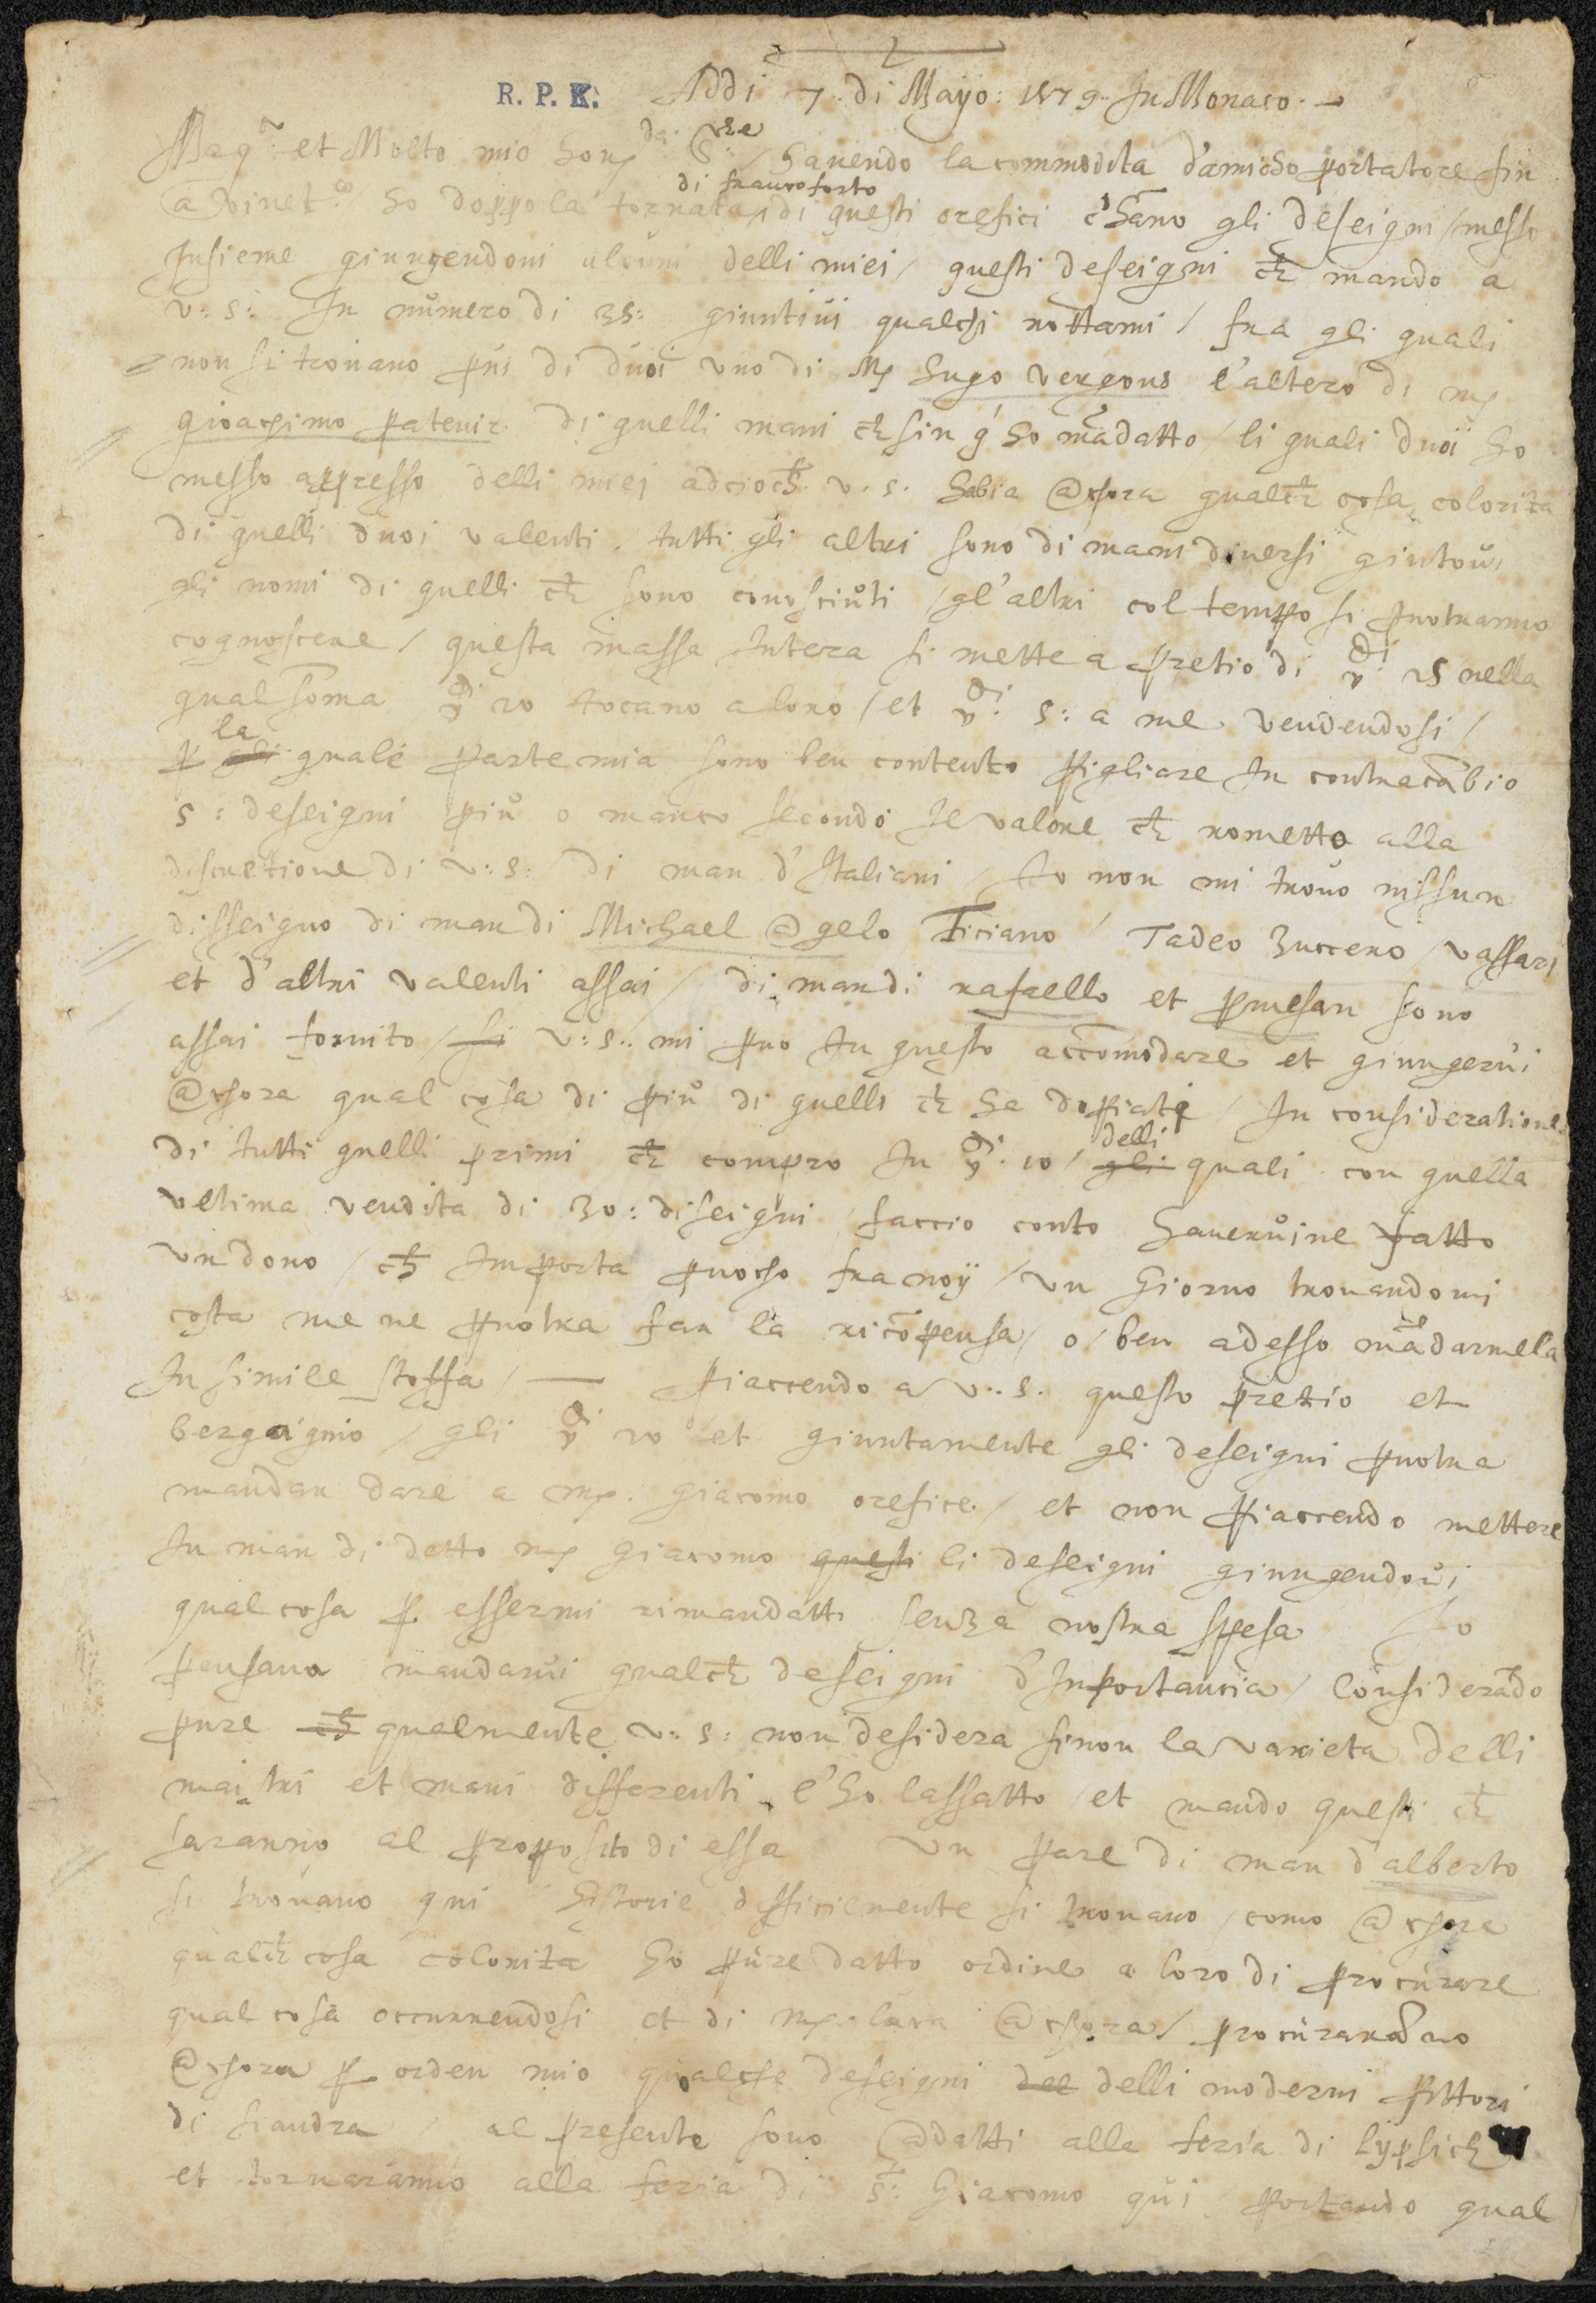 R. P. K. Addi 7. di Mayo: 1579. In Monaco.
Mag.co et Molto mio hon.do S.re / Havendo la commodita d'amicho portatore fin
a / ho doppo la tornata di francoforto di questi orefici c'hano gli deseigni / messo
Insieme giungendoni alcuni delli miei / questi deseigni ch mando a
v: s: In número di 35: giuntivi qualchi nottami / fra gli quali
non si trovano piu di duoi uno di Mr Hugo vergous l'altero di mr
gioachimo patenir di quelli mani ch sin q' ho mādatto / li quali duoi ho
messo appresso delli miei adcioch. v. s. habia @chora qualch cosa colorita
di quelli duoi valenti. tutti gli altri sono di mani diversi giuntovi
gli nomi di quelli ch sono conosciuti / gl'altri col tempo si puotranno
cognoscere / questa massa Intera si mette a pretio di v.di 25 nella
qual soma v.di 20 tocano a loro / et v.di 5: a me vendendosi /
p la gli quale parte mia sono ben contento pigliare In contracābio
5: deseigni più o manco secondo le valore ch rometto alla
discretione di v: s: di man d'Italiani / Io non mi trovo nissun
disseigno di man di Michael @gelo Ticiano / Tadeo Zuccero / vassari
et d'altri valenti assai / di man di rafaello et pmesan sono
assai fornito / si v: s.. mi puo In questo accomodare et giungervi
@chora qual cosa di più di quelli ch ha dopiati / In consideratione
di tutti quelli primi ch compro In v.di 10 / gli delli quali con quella
veltima vendita di 30: diseigni / faccio conto haverũine fatto
un dono / ch Importa puocho fra noÿ / un Giorno trovandomi
costa me ne puotra far la ricōpensa / o / ben adesso mādarmela
In simile stoffa / — Piaccendo a v.. s. questo pretio et
bergaignio / gli v.di 20 et giuntamente gli deseigni puotra
mandar dare a mr. giacomo orefice / et non piaccendo mettere
In man di detto mr giacomo questi li deseigni giungendovi
qual cosa p essermi rimandatti senza nostra spesa / Io
pensava mandarvi qualch deseigni d'Importancia / Considerādo
pure ch qualmente v: s: non desidera sinon la varieta delli
maistri et mani differenti l'ho lassatto / et mando questi ch
saranno al proposito di essa Un pare di man d'alberto
si trovano qui / historie difficilmente si trovano / como @chora
qualch cosa colorita ho pure datto ordine a loro di procurare
qual cosa occurrendosi et di mr. luca @chora / procuraranno
@chora p orden mio qualche deseigni del delli moderni pittori
di fiandra / al presente sono @datti alla feria di lÿpsich
et tornaranno alla feria di S: Giacomo qui / portando qual